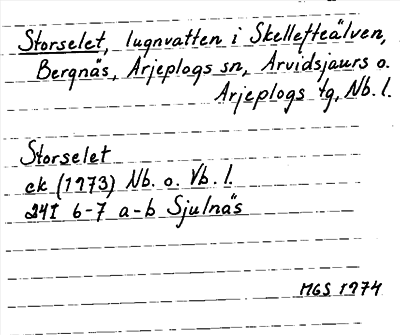 Storselet, lugnvatten i Skellefteälven,
Bergnäs, Arjeplogs sn, Arvidsjaurs o.
Arjeplogs tg, Nb. l.
Storselet
ek (1973) Nb. o. Vb. l.
24I 6-7 a-b Sjulnäs
MGS 1974